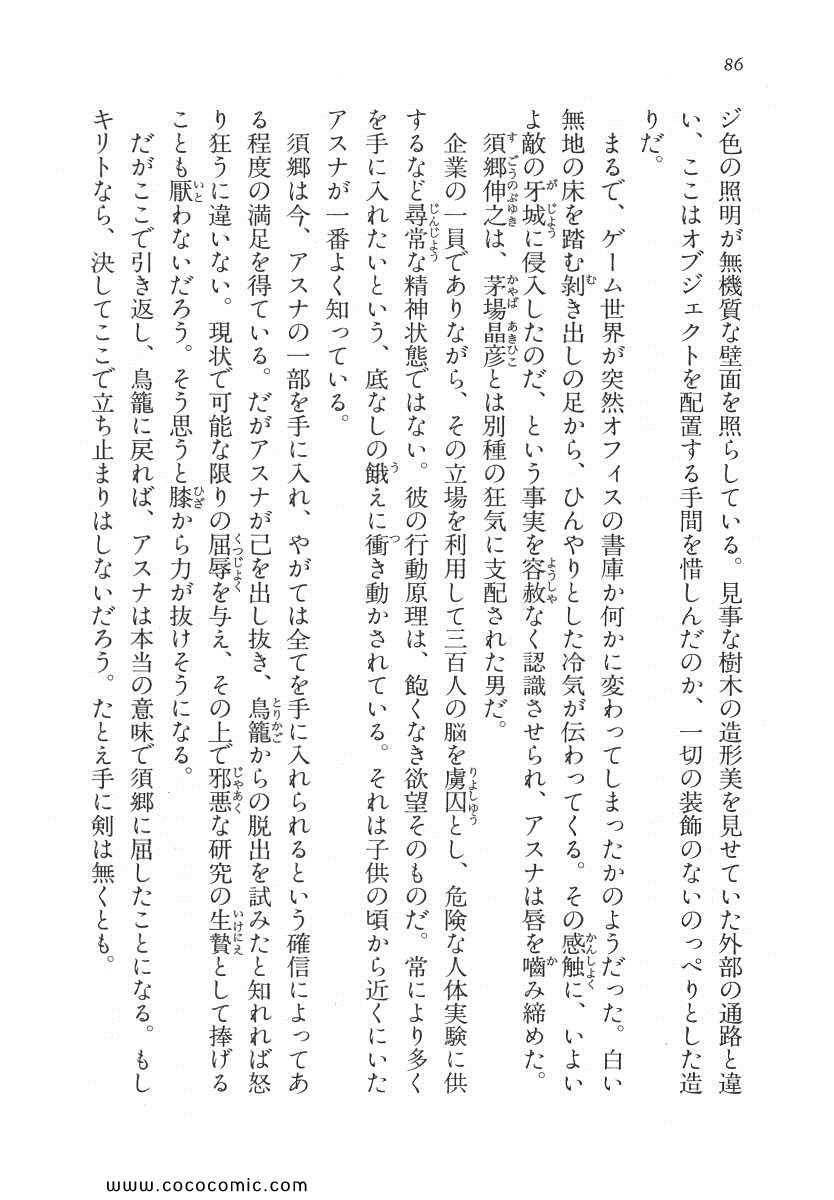 86
ジ色の照明が無機質な壁面を照らしている。見事な樹木の造形美を見せていた外部の通路と違
い、ここはオブジェクトを配置する手間を惜しんだのか、一切の装飾のないのっぺりとした造
りだ。
まるで、ゲーム世界が突然オフィスの書庫か何かに変わってしまったかのようだった。白い
無地の床を踏む剝き出しの足から、ひんやりとした冷気が伝わってくる。その感触に、いよい
よ敵の牙城に侵入したのだ、という事実を容赦なく認識させられ、アスナは唇を嚙み締めた。
須郷伸之は、茅場晶彦とは別種の狂気に支配された男だ。
企業の一員でありながら、その立場を利用して三百人の脳を虜囚とし、危険な人体実験に供
するなど尋常な精神状態ではない。彼の行動原理は、飽くなき欲望そのものだ。常により多く
を手に入れたいという、底なしの餓えに衝き動かされている。それは子供の頃から近くにいた
アスナが一番よく知っている。
須郷は今、アスナの一部を手に入れ、やがては全てを手に入れられるという確信によってあ
る程度の満足を得ている。だがアスナが己を出し抜き、鳥籠からの脱出を試みたと知れれば怒
り狂うに違いない。現状で可能な限りの屈辱を与え、その上で邪悪な研究の生贄として捧げる
ことも厭わないだろう。そう思うと膝から力が抜けそうになる。
だがここで引き返し、鳥籠に戻れば、アスナは本当の意味で須郷に屈したことになる。もし
キリトなら、決してここで立ち止まりはしないだろう。たとえ手に剣は無くとも。
www.cococomic.com